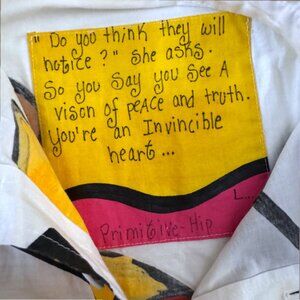 "Do you think they will
notice?" she asks.
So you say you see A
vison of peAce and truth.
You're an Invincible
heart...
L...
Primitive-Hip